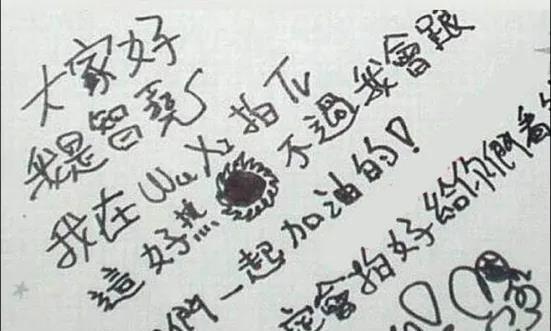 大家好
我是智堯
我在Wu Xi拍TV
這好熱 不過我會跟
們一起加油的!
定會拍好給你們看